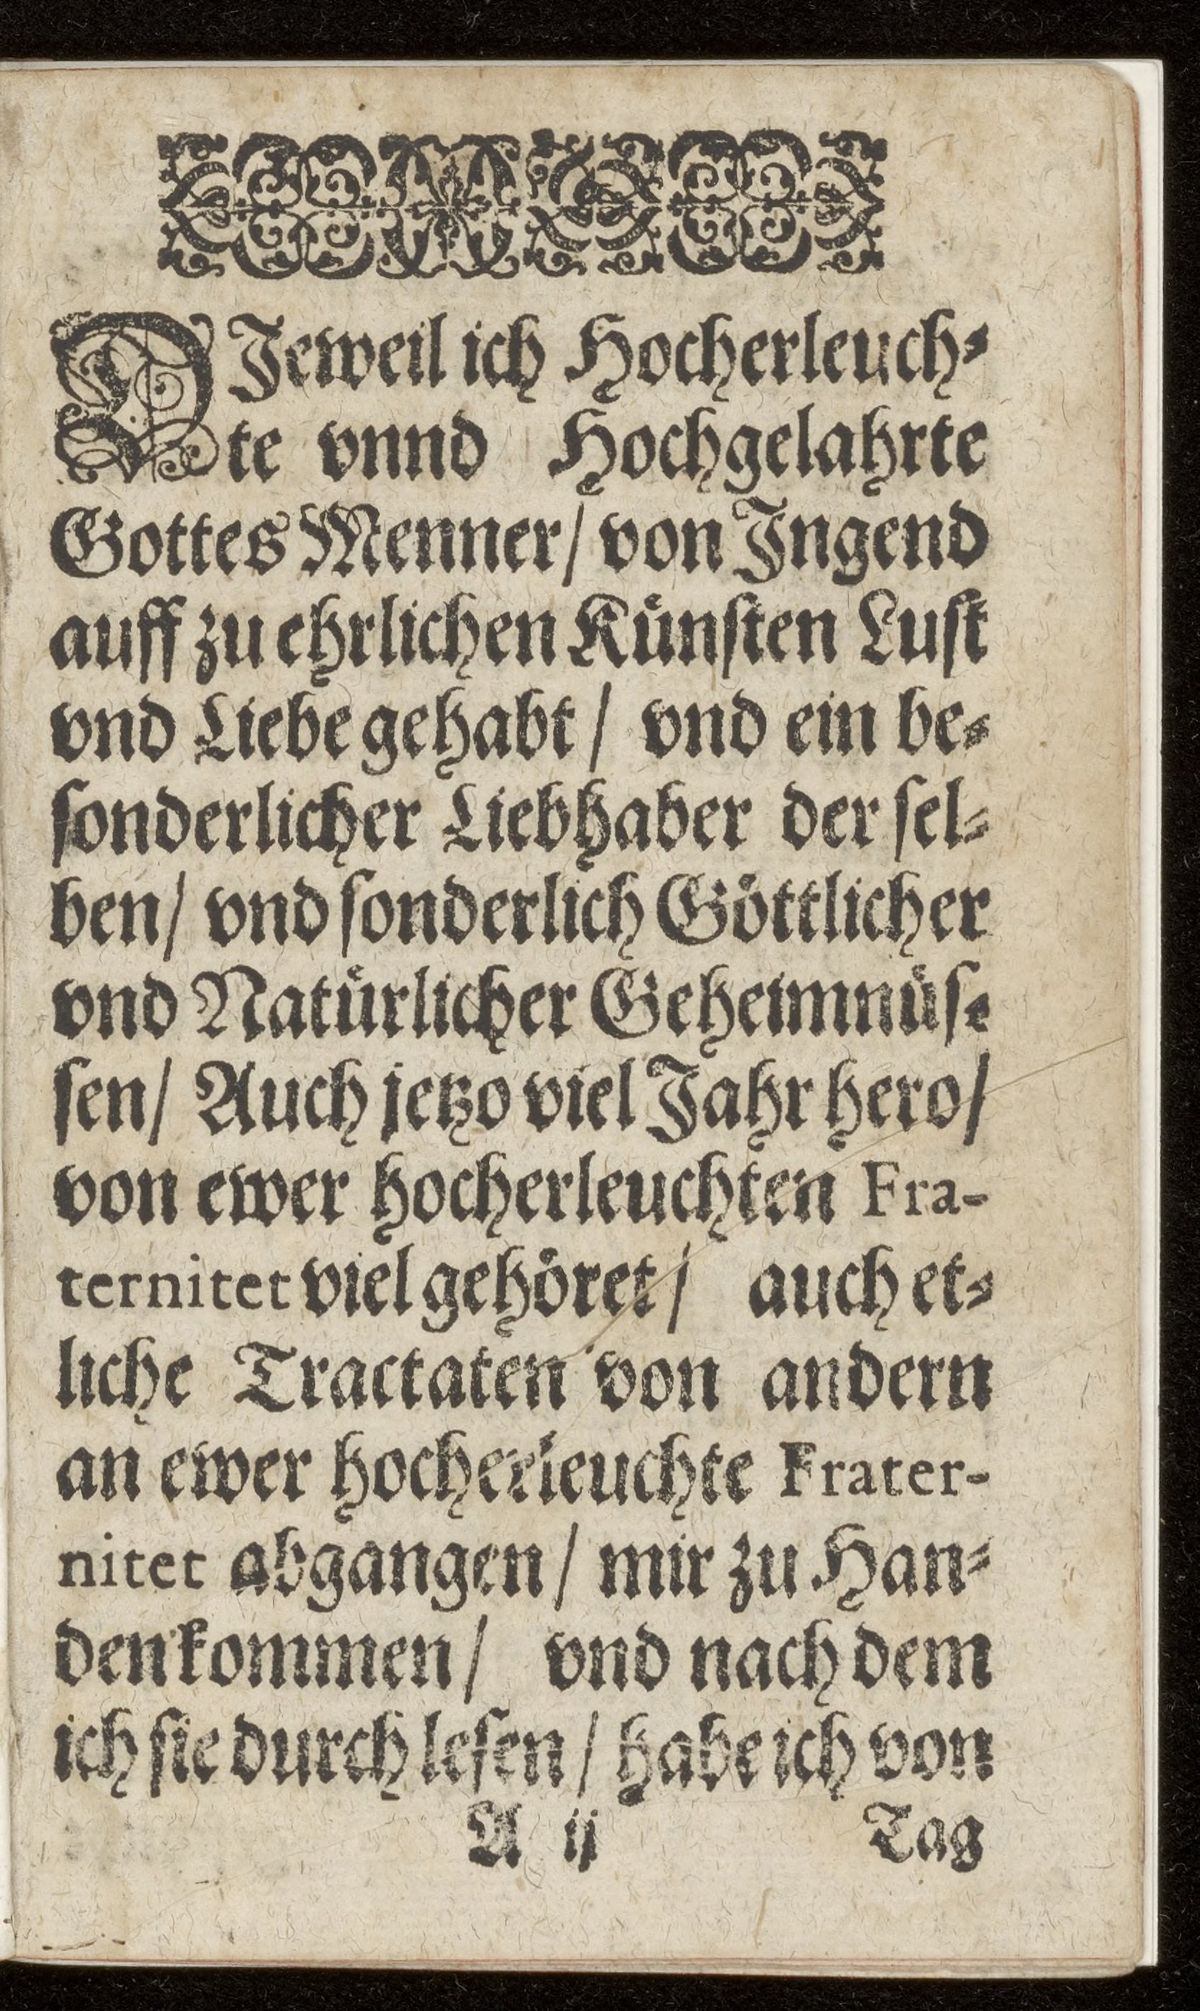 DJeweil ich Hocherleuch-
te vnnd Hochgelahrte
Gottes Menner/ von Jngend
auff zu ehrlichen Künsten Lust
vnd Liebe gehabt/ vnd ein be-
sonderlicher Liebhaber der sel-
ben/ vnd sonderlich Göttlicher
vnd Natürlicher Geheimnüs-
sen/ Auch jetzo viel Jahr hero/
von ewer hocherleuchten Fra-
ternitet viel gehöret/ auch et-
liche Tractaten von andern
an ewer hocherleuchte Frater-
nitet abgangen/ mir zu Han-
den kommen/ vnd nach dem
ich sie durch lesen/ habe ich von
A ij Tag